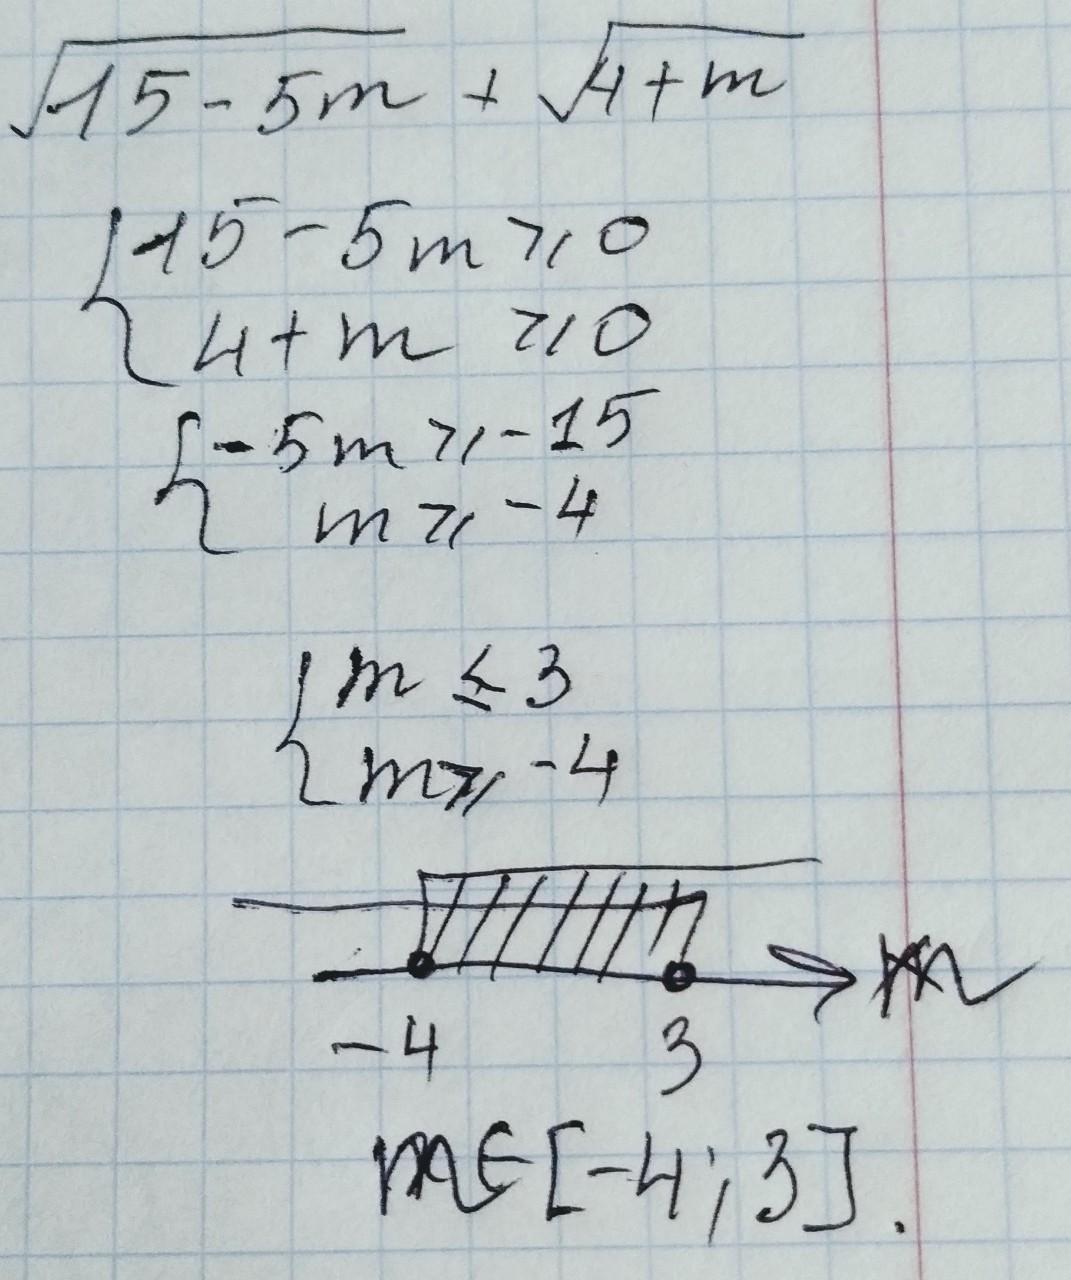 √15-5m + √4+m
{15-5m ⩾ 0
4+m ⩾ 0
{-5m ⩾ -15
m ⩾ -4
{m ≤ 3
m ⩾ -4
m
-4 3
m∈[-4;3].